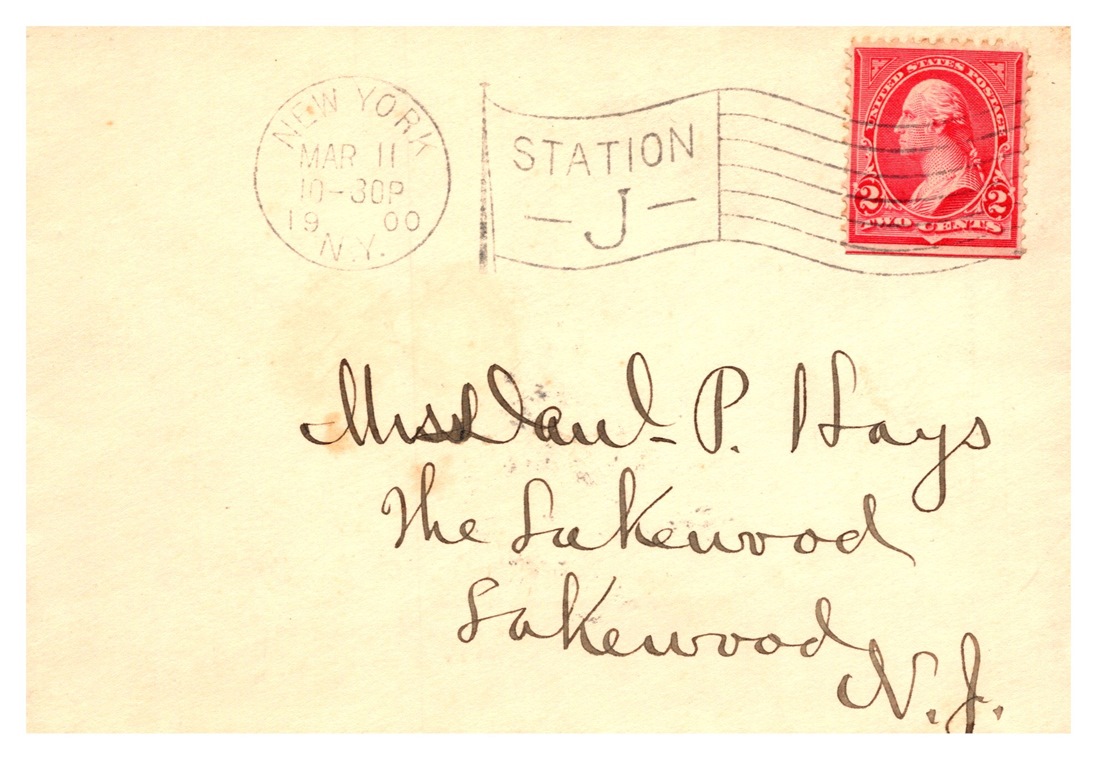 NEW YORK
MAR 11
10-30P
1900
N.Y.
STATION
- J -
UNITED STATES POSTAGE
2 2
TWO CENTS
Dan'l- P. Hays
The Lakewood
Lakewood
N.J.